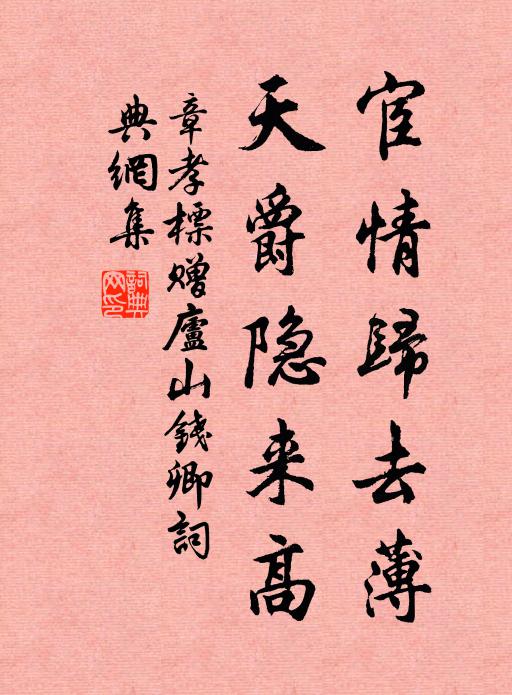 宦情歸去薄
天爵隐来高
章孝標贈廬山錢卿詞
典網集
詞典網印